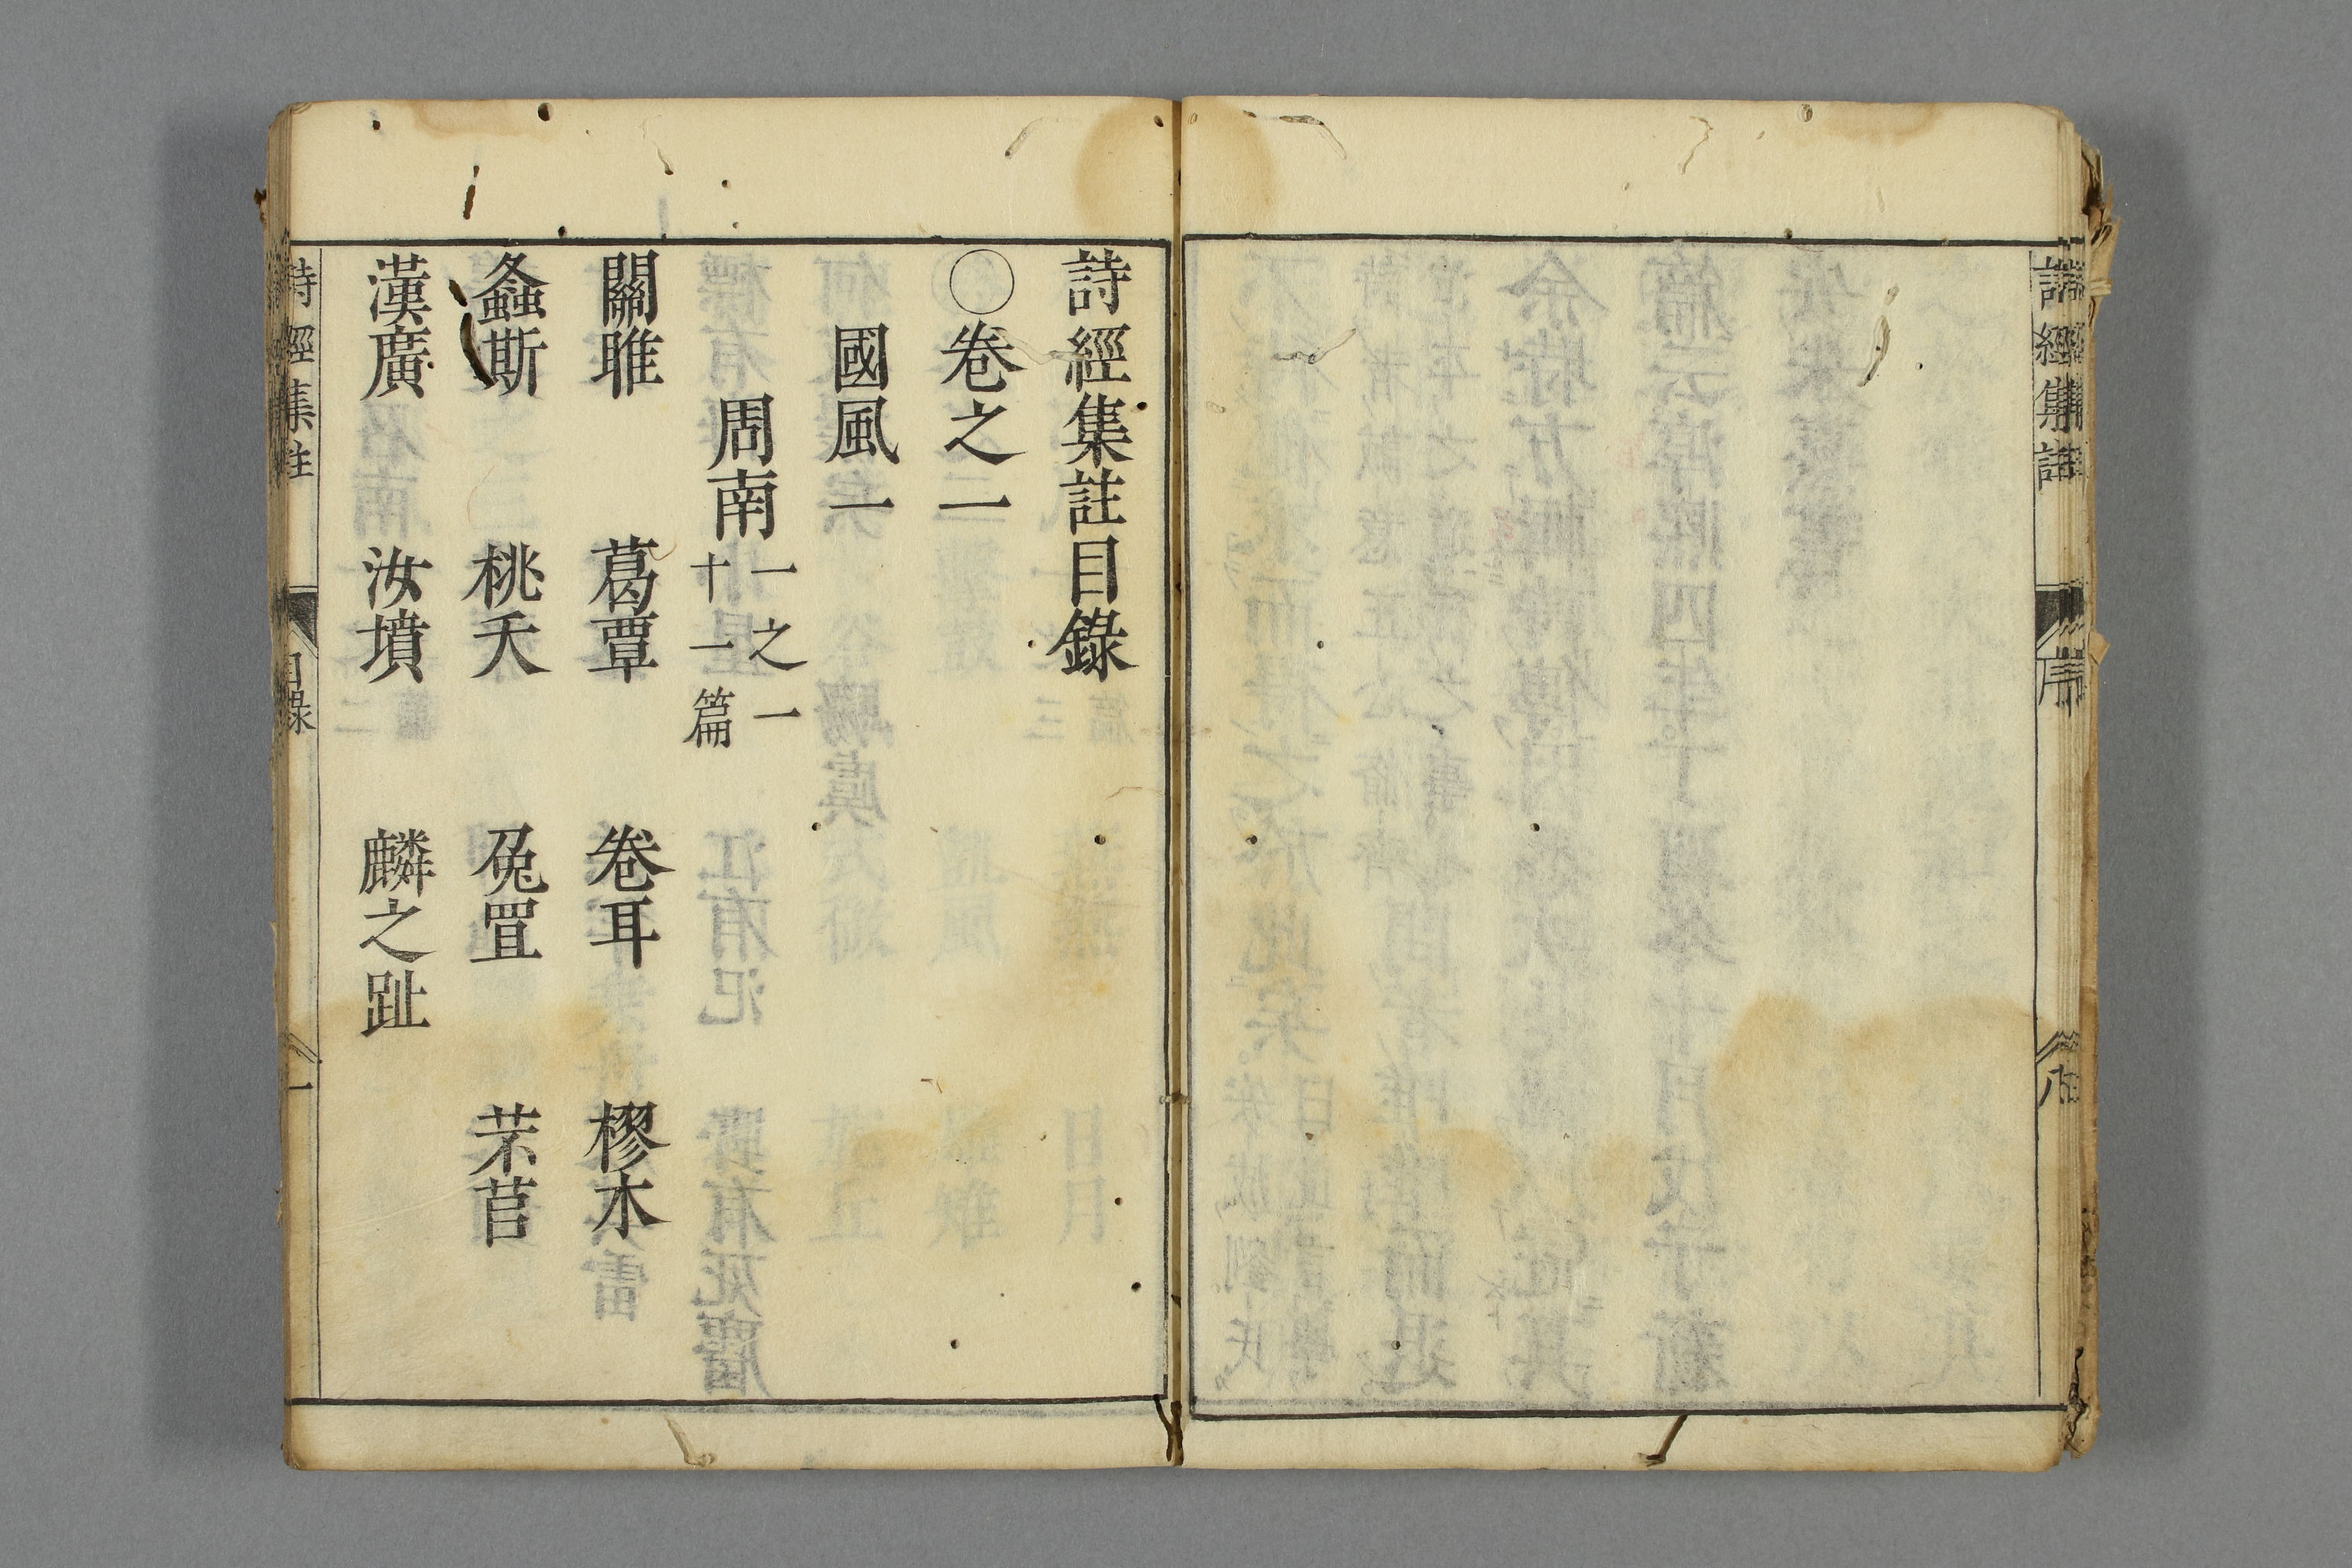 詩經集註
序
八
詩經集註目錄
○卷之一
國風一
周南 一之一 十一篇
關雎 葛覃 卷耳 樛木
螽斯 桃夭 兔罝 芣苢
漢廣 汝墳 麟之趾
詩經集註
目錄
一